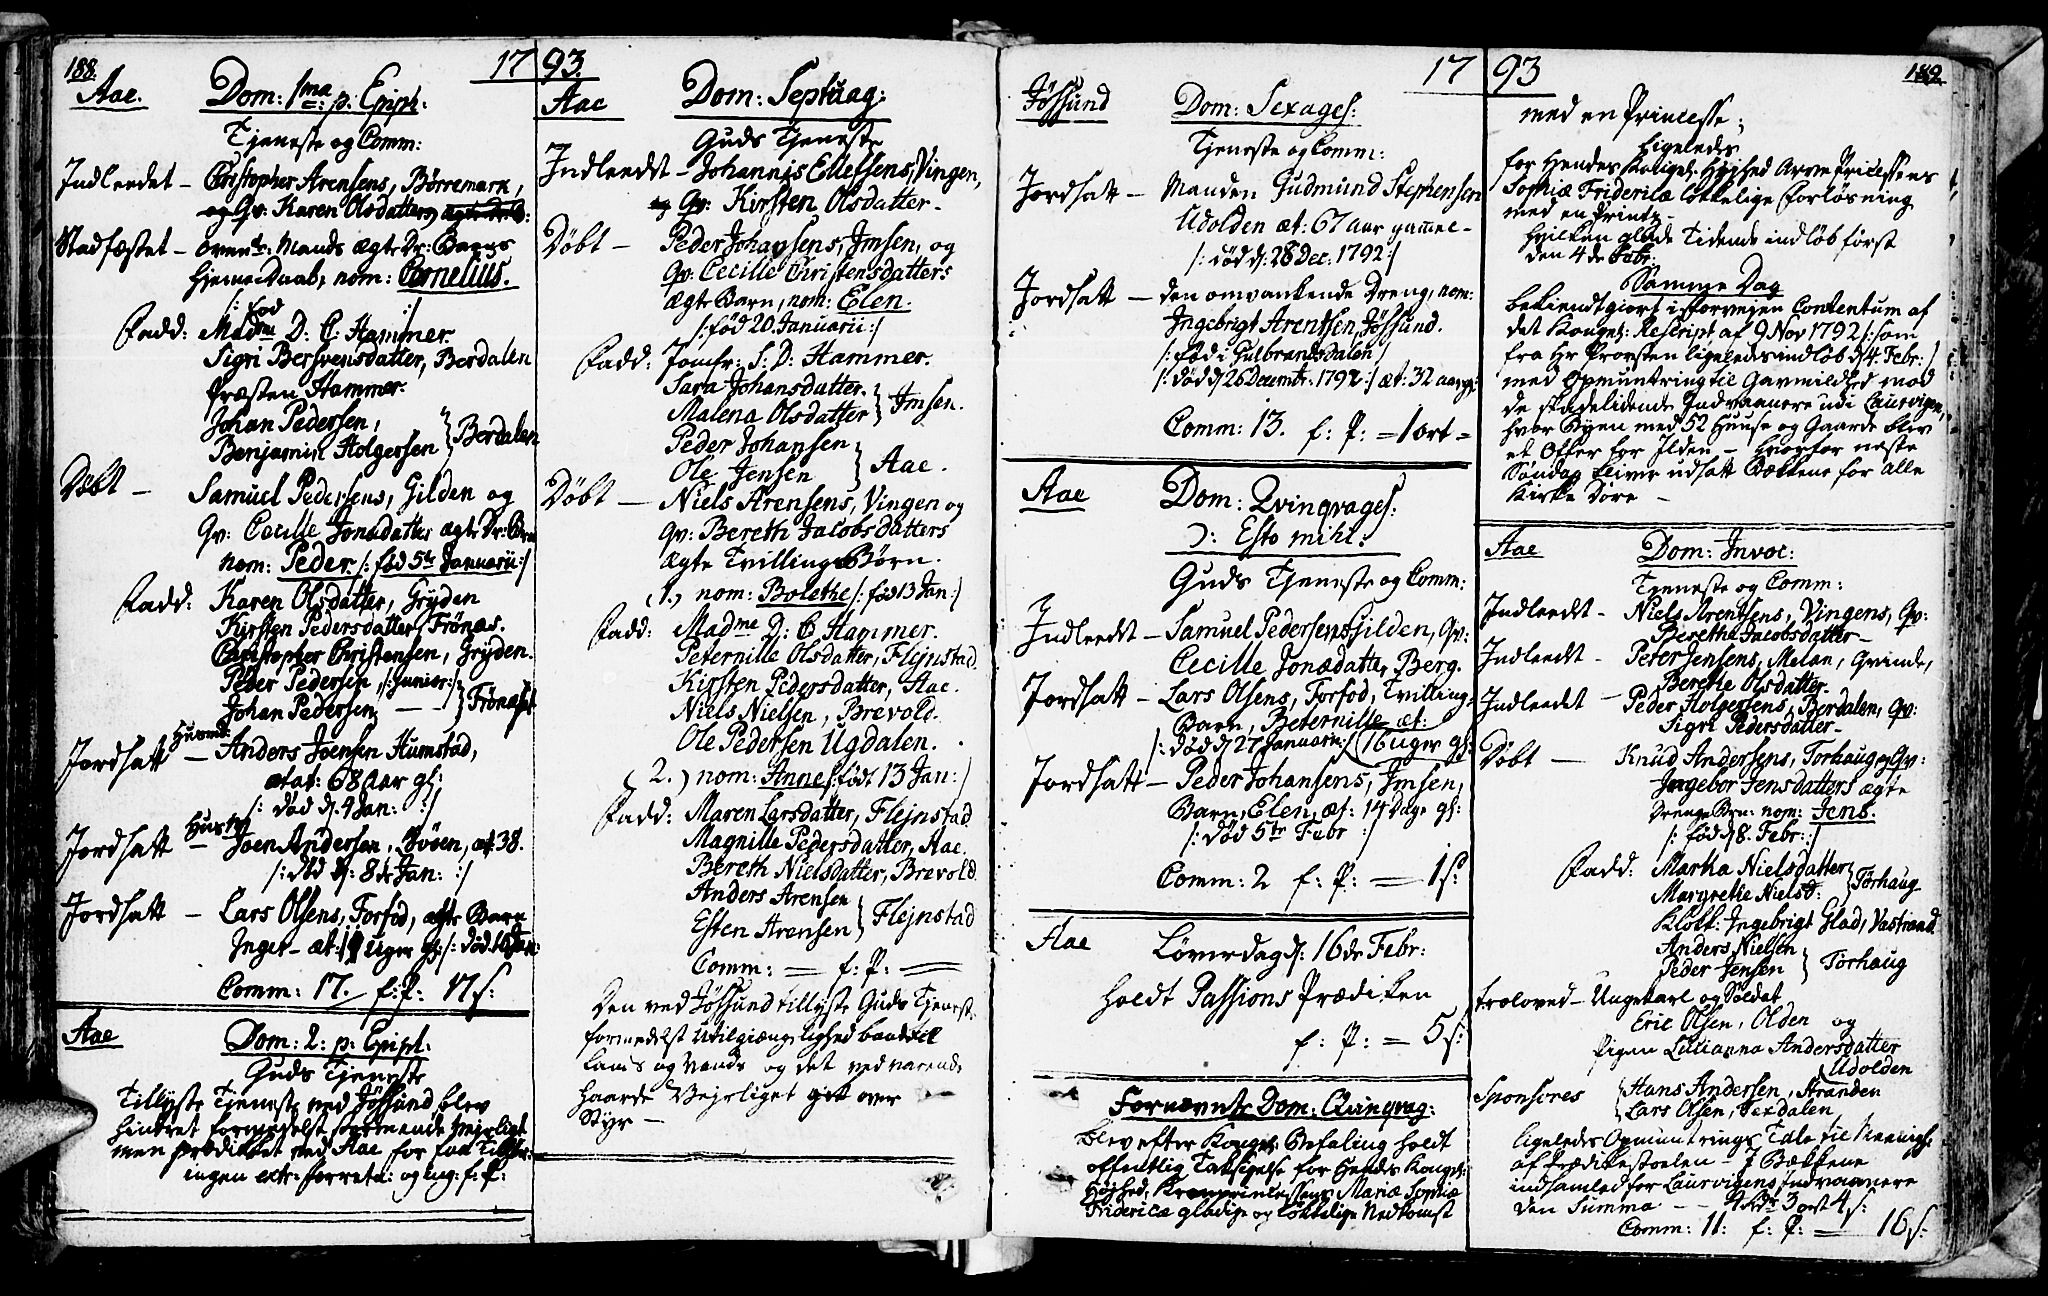 188.
17
Aae.
Dom: 1ma: p: Epiph:
Tjeneste og Comm:
Indleedet – Christopher Arensens, Börremark,
og Qv: Karen Olsdatter,
Stadfæstet – Mands ægte Dr: Barns
Hjemme Daab, nom: Cornelius.
/: fød :/
Fadd: Madme D. C. Hammer.
Sigri Bersvensdatter, Berdalen
Præsten Hammer.
Johan Pedersen,
Benjamin Holgersen } Berdalen
Döbt – Samuel Pedersens, Gilden og
Qv: Cecille Jonædatter ægte Dr: Barn
nom: Peder /: fød 5te Januarii :/
Fadd: Karen Olsdatter, Gryden
Kirsten Pedersdatter, Frönæs.
Christopher Christensen, Gryden.
Peder Pedersen, /: junior :/
Johan Pedersen – – } Frönæset
Husmd:
Jordsatt – Anders Joensen Humstad,
ætat: 68 aar gl:
/: död d. 4 Jan: :/
Jordsatt Joen Andersen, æt 38.
/: död d: 8de Jan: :/
Jordsatt – Lars Olsens, Forfod, ægte Barn
Inger – æt: Uger gl: /: död 16 Jan:
Comm: 17. f: P: 17 s:
Aae
Dom: 2: p: Epiph:
Guds Tjeneste
Tillyste Tjeneste ved Jössund blev
hindret formedelst stormende Vejrligt
men prædiket ved Aae for faa Tilhör-
ingen extr: forretn: og ing: f: P:
93.
Aae
Dom: Septuag:
Guds Tjeneste
Indleedt – Johannis Ellefsens, Vingen,
og Qv: Kirsten Olsdatter –
Döbt – Peder Johansens, Imsen, og
Qv: Cecille Christensdatters
ægte Barn, nom: Elen.
/: fød 20. Januarii :/
Fadd: Jomfr: S: D: Hammer.
Sara Johansdatter.
Malena Olsdatter } Imsen.
Peder Johansen
Ole Jensen } Aae.
Döbt – Niels Arensens, Vingen og
Qv: Bereth Jacobsdatters
ægte Tvillinge Börn.
(1.) nom: Bolethe /: fød 13 Jan: /
Fadd: Madme D: C Hammer.
Peternille Olsdatter, Flejnstad.
Kirsten Pedersdatter, Aae.
Niels Nielsen, Brevold.
Ole Pedersen Ugdalen.
(2.) nom: Anne /: födt 13 Jan: /
Fadd: Maren Larsdatter, Flejnstad.
Magnille Pedersdatter, Aae.
Bereth Nielsdatter, Brevold.
Anders Arensen
Esten Arensen } Flejnstad
Comm: = f: P: =
Den ved Jössund tillyste Guds Tjeneste
formedelst Utilgiængelighed baade til
Lands og Vands og det vedvarende
haarde Vejrliget gik over
Styr –
17
Jössund
Dom: Sexages:
Tjeneste og Comm:
Jordsatt – Manden Gudmund Stephensen
Udolden æt: 67 aar gammel –
/: död d: 28 Dec: 1792 :/
Jordsatt – den omvankende Dreng, nom:
Ingebrigt Arentsen, Jössund.
/: föd i Gulbrandsdalen /
/: död d 26 Decembr: 1792 :/ æt: 32 aar gl:
Comm: 13. f: P: = 1 ort =
Aae
Dom: Qvinqvages:
ɔ: Esto mihi:
Guds Tjeneste og Comm:
Indleedt – Samuel Pedersens Gilden, Qv:
Cecille Jonædatter, Berg.
Jordsatt – Lars Olsens, Forfod, Tvilling
Barn, Peternille æt:
/: död d 27 Januarii :/ (16 uger gl:
Jordsatt – Peder Johansens, Imsen,
Barn, Elen, æt: 14 Dage gl:
/: död 5te Febr :/
Comm: 2 f: P: = 1 s:
Aae
Löverdag d: 16de Febr:
holdt Passions Prædiken
f: P: = 5 s:
Fornævnte Dom: Quinqvag:
blev efter Kongel: Befaling holdt
offentlig Taksigelse for Hendes Kongel:
Højhed, Kronprincessens Mariæ Sophiæ
Fridericæ gladige og lökkelige Nedkomst
93
189.
med en Princesse;
Ligeledes
for Hendes Kongel: Højhed Arve Princessens
Sophiæ Fridericæ lökkelige Forlösning
med en Printz –
hvilken glade Tidende indlöb först
den 4de Febr:
Samme Dag
bekiendtgiort i forvejen Contentum af
det Kongel: Rescript af 9 Nov 1792 /: som
fra Hr Provsten ligeledes indlöb d 4. Febr: /
med Opmuntring til Gavmildhed mod
de skadelidende Indvaanere udi Laurvigen,
hvor Byen med 52 Huuse og Gaarde blev
et Offer for Ilden – hvorfor næste
Söndag bliver udsatt Bækkene for alle
Kirke Döre –
Aae
Dom: Invoc:
Tjeneste og Comm:
Indleedt – Niels Arentsens, Vingens, Qv:
Berethe Jacobsdatter –
Indleedt – Peter Jensens, Melan, Qvinde,
Berethe Olsdatter.
Indleedt – Peder Holgersens, Berdalen, Qv:
Sigri Pedersdatter –
Döbt – Knud Andersens, Torhaug og Qv:
Ingebor Jensdatters ægte
Drenge Brn: nom: Jens.
/: född 8. Febr: /
Fadd: Martha Nielsdatter
Margrethe Nielsd: } Torhaug
Klokk: Ingebrigt Glad, Vastrand
Anders Nielsen
Peder Jensen } Torhaug
troloved – Ungekarl og Soldat
Eric Olsen, Olden og
Pigen Lucianna Andersdatter
Udolden
Sponsores { Hans Andersen, Stranden
Lars Olsen, Texdalen,
ligeledes Opmuntrings Tale til Menigh:
af Prædikestoelen – I Bækkene
indsamled for Laurvigens Indvaanere
den Summa – – 4 Rdr 3 ort 4 s:
Comm: 11: f: P: = 16 s: